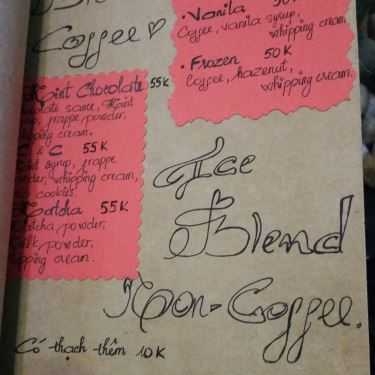 Coffee
• Vanila
Coffee, vanila syrup,
whipping cream
• Frozen 50K
Coffee, hazenut,
whipping cream.
Mint Chocolate 55K
sauce, Mint
frappe powder,
cream.
& C 55K
syrup, frappe
whipping cream,
cookies.
Matcha 55K
Matcha powder,
Milk powder,
whipping cream.
Ice
Blend
Non-Coffee.
Có thạch thêm 10K